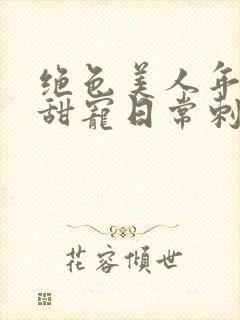 绝色美人年
甜宠日常刺
花容倾世